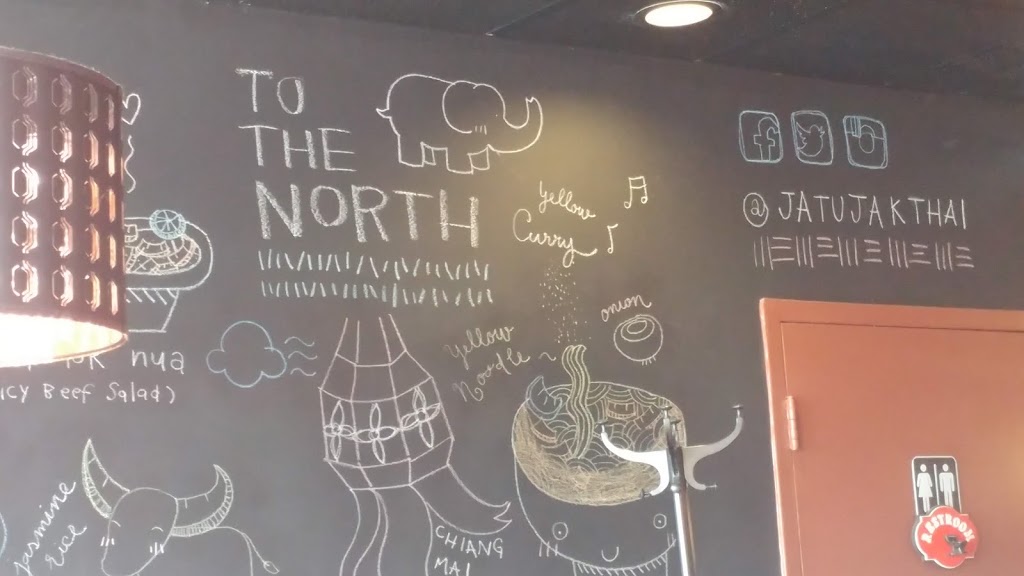 TO
THE
NORTH
yellow
Curry
@JATUJAKTHAI
onion
yellow
Noodle
nua
ICY BEEF Salad)
Jasmine
Rice
CHIANG
MAI
RESTROOM